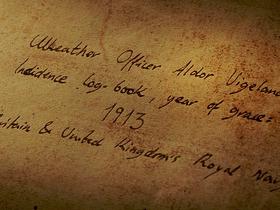 Wheather Officer Aldor Vigeland
Incidence log-book, year of grace:
1913
Britain & United Kingdom's Royal Navy